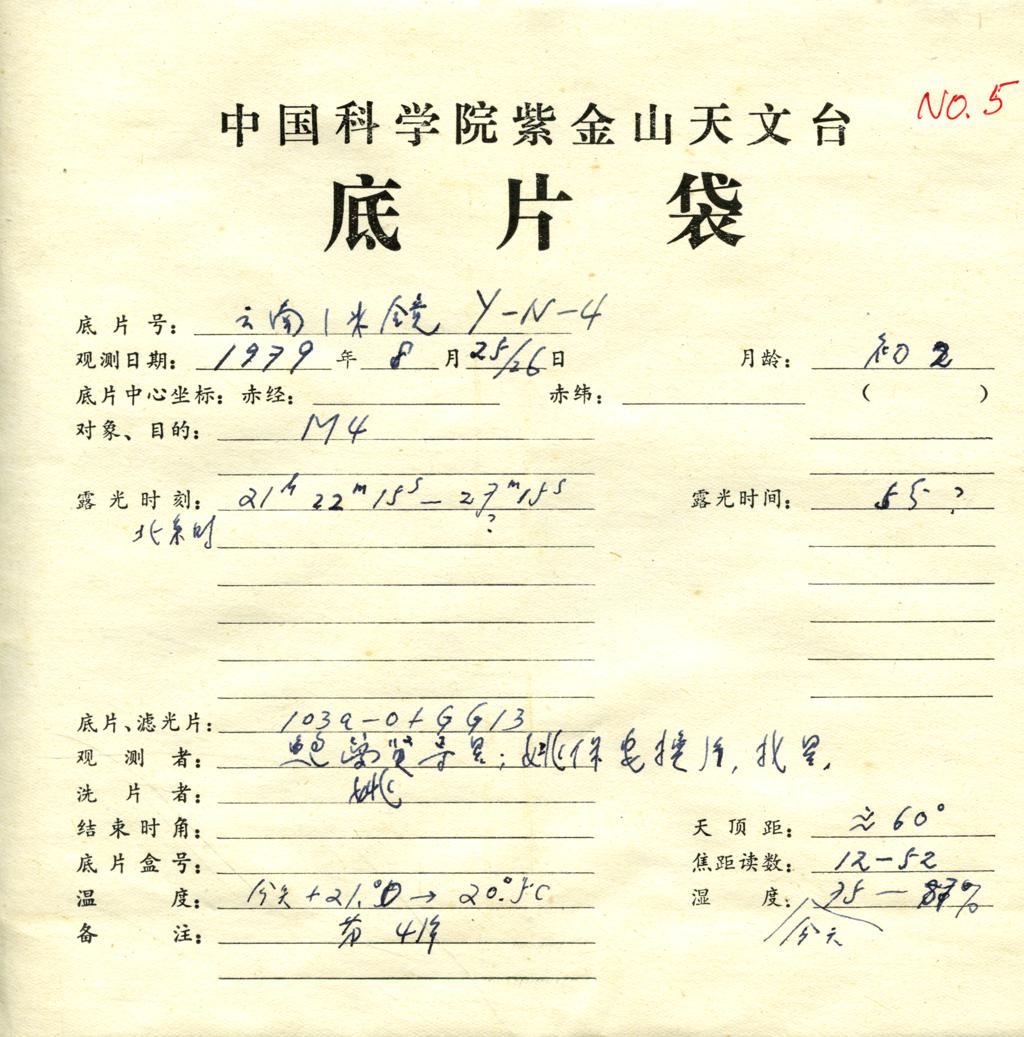 NO. 5
中国科学院紫金山天文台
底片袋
底片号: 云南1米镜 Y-N-4
观测日期: 1979年8月25/26日 月龄: 初2
底片中心坐标: 赤经: 赤纬: ( )
对象、目的: M4
露光时刻: 21h 22m15s-27m15s 露光时间: 5分?
北京时 ?
底片、滤光片: 103a-O+GG13
观测者: 导星; 姚保安换片, 找星.
洗片者: 姚
结束时角: 天顶距: ≈60°
底片盒号: 焦距读数: 12-52
温度: 今天+21.°0→20.°5C 湿度: 75-%
备注: 第4片 今天